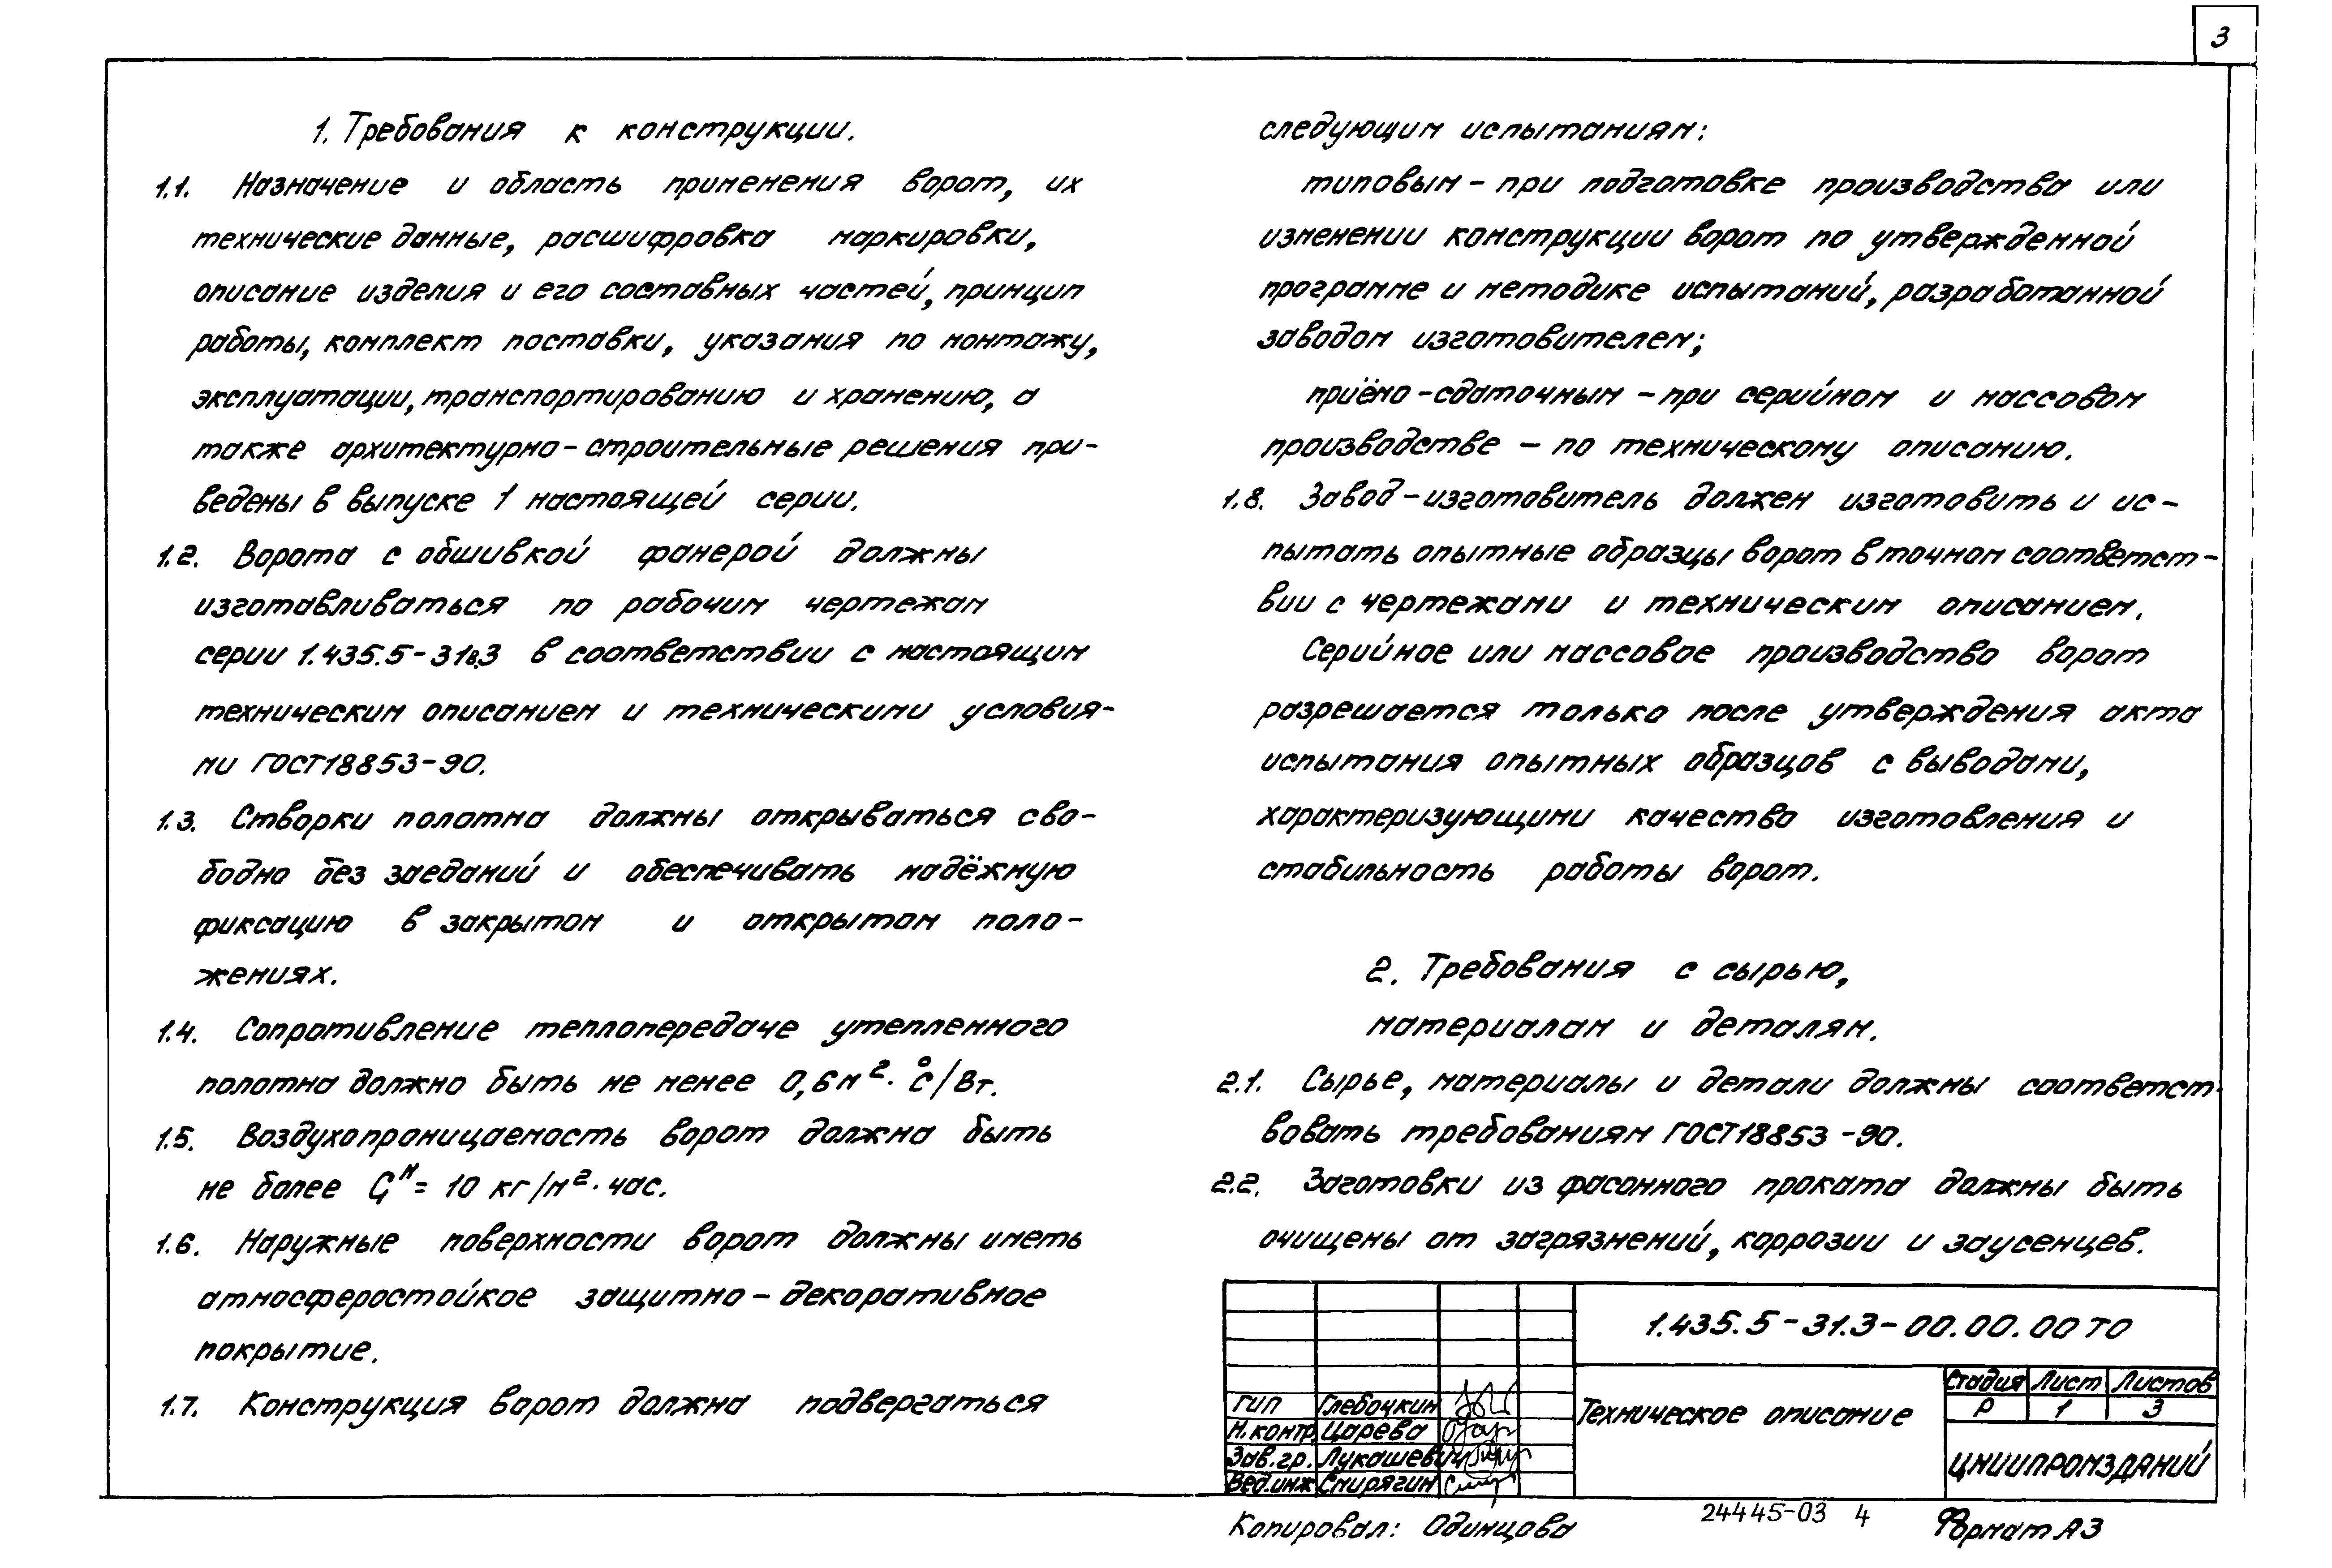 3
1. Требования к конструкции.
1.1. Назначение и область применения ворот, их
технические данные, расшифровка маркировки,
описание изделия и его составных частей, принцип
работы, комплект поставки, указания по монтажу,
эксплуатации, транспортированию и хранению, а
также архитектурно-строительные решения при-
ведены в выпуске 1 настоящей серии.
1.2. Ворота с обшивкой фанерой должны
изготавливаться по рабочим чертежам
серии 1.435.5-31в.3 в соответствии с настоящим
техническим описанием и техническими условия-
ми ГОСТ18853-90.
1.3. Створки полотна должны открываться сво-
бодно без заеданий и обеспечивать надёжную
фиксацию в закрытом и открытом поло-
жениях.
1.4. Сопротивление теплопередаче утепленного
полотна должно быть не менее 0,6 м²·°С/Вт.
1.5. Воздухопроницаемость ворот должна быть
не более Gᴴ= 10 кг/м²·час.
1.6. Наружные поверхности ворот должны иметь
атмосферостойкое защитно-декоративное
покрытие.
1.7. Конструкция ворот должна подвергаться
следующим испытаниям:
типовым - при подготовке производства или
изменении конструкции ворот по утвержденной
программе и методике испытаний, разработанной
заводом изготовителем;
приёмо-сдаточным - при серийном и массовом
производстве - по техническому описанию.
1.8. Завод-изготовитель должен изготовить и ис-
пытать опытные образцы ворот в точном соответст-
вии с чертежами и техническим описанием.
Серийное или массовое производство ворот
разрешается только после утверждения акта
испытания опытных образцов с выводами,
характеризующими качество изготовления и
стабильность работы ворот.
2. Требования с сырью,
материалам и деталям.
2.1. Сырье, материалы и детали должны соответст-
вовать требованиям ГОСТ18853-90.
2.2. Заготовки из фасонного проката должны быть
очищены от загрязнений, коррозии и заусенцев.
1.435.5-31.3-00.00.00 ТО
Техническое описание
Стадия Лист Листов
Р 1 3
ЦНИИПРОМЗДАНИЙ
ГИП Глебочкин
Н.контр. Царева
Зав.гр. Лукашевич
Вед.инж Спирягин
Копировал: Одинцова
24445-03 4
Формат А3